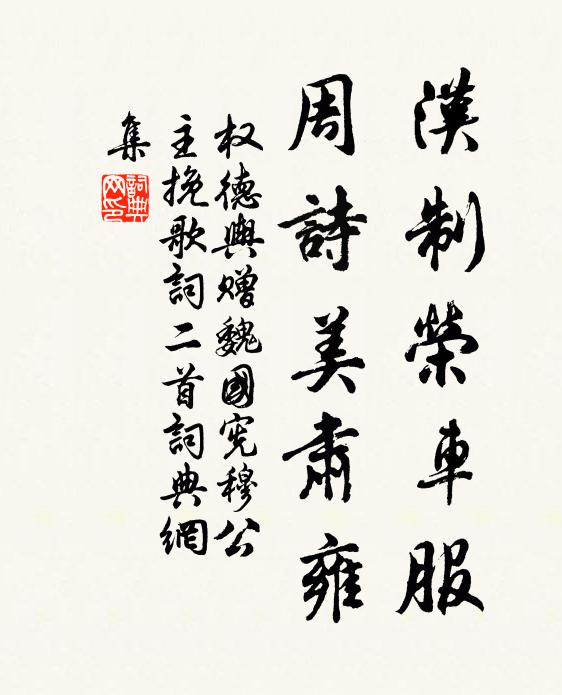 漢制榮車服
周詩美肅雍
权德輿赠魏國宪穆公
主挽歌詞二首詞典網
集
詞典網印